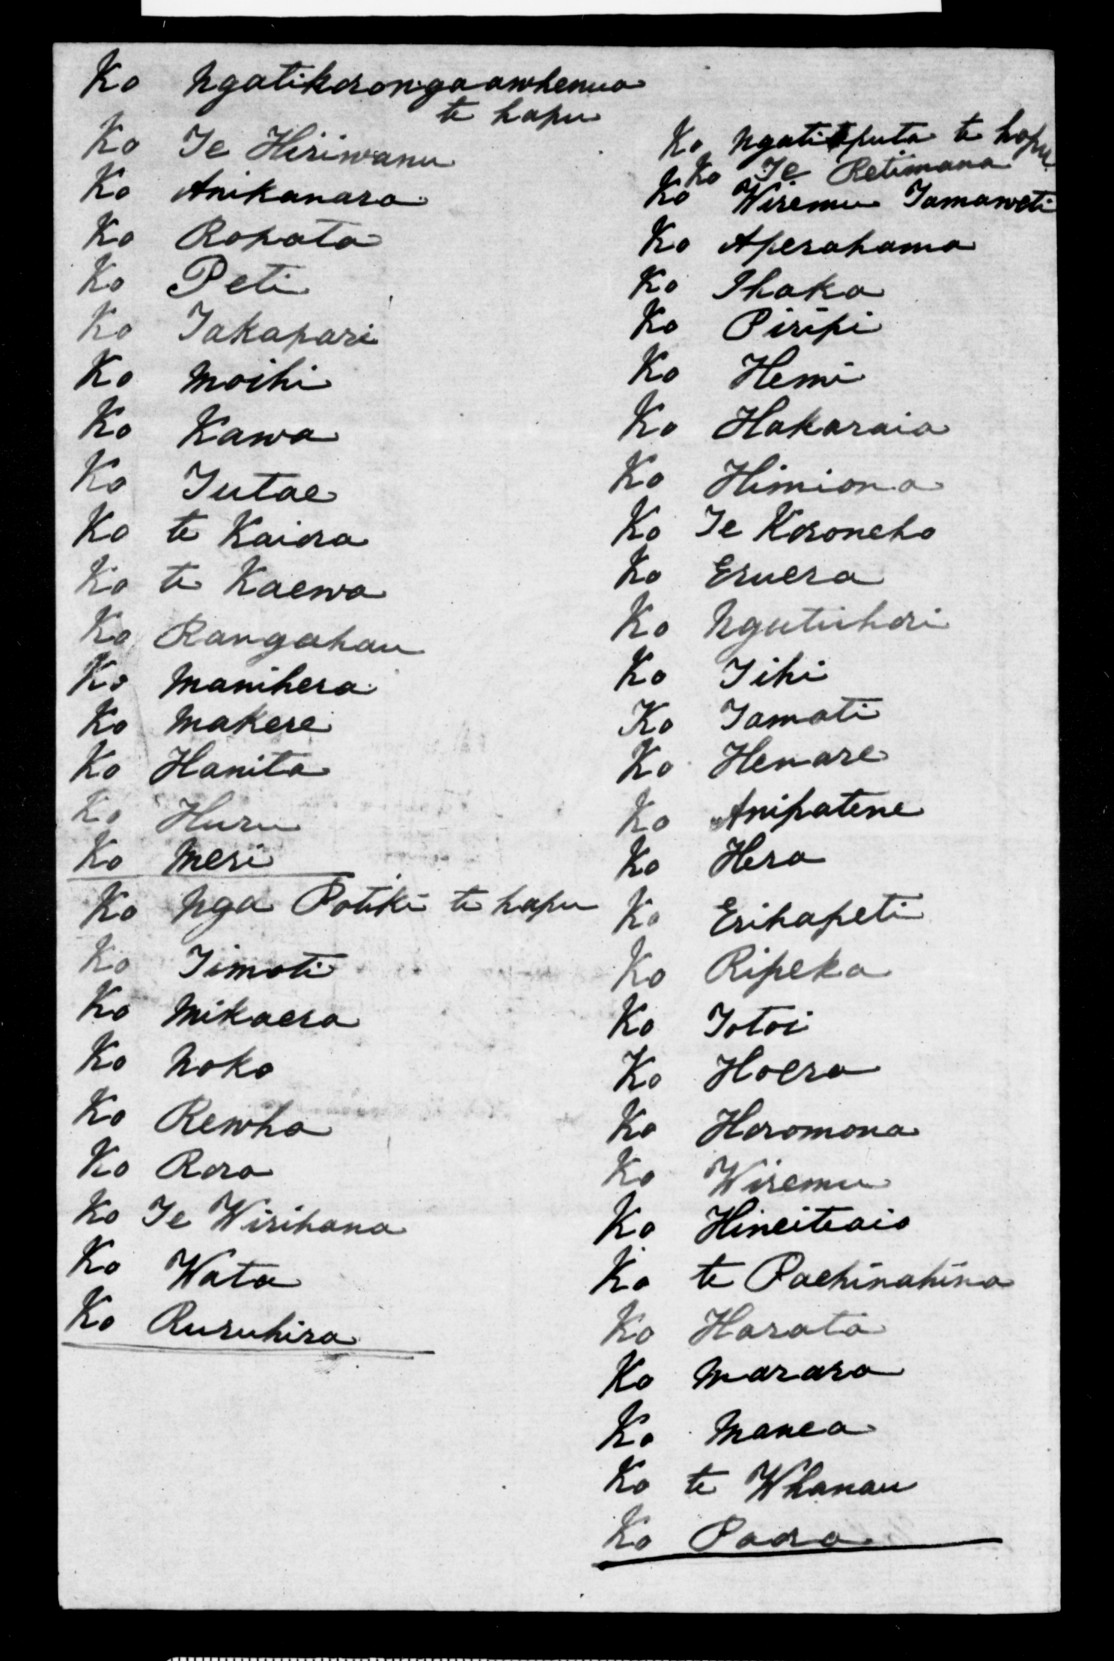 Ko Ngatikorongaawhenua
te hapu
Ko Te Hiriwanu
Ko Anikanara
Ko Ropata
Ko Peti
Ko Takapari
Ko Moihi
Ko Kawa
Ko Tutae
Ko te Kaiora
Ko te Kaewa
Ko Rangahau
Ko Manihera
Ko Makere
Ko Hanita
Ko Huru
Ko Meri
Ko Nga Potiki te hapu
Ko Timoti
Ko Mikaera
Ko Noko
Ko Rewha
Ko Rora
Ko Te Wirihana
Ko Wata
Ko Ruruhira
Ko te hapu
Ko Te Retimana
Ko Wiremu Tamaweti
Ko Aperahama
Ko Ihaka
Ko Piripi
Ko Hemi
Ko Hakaraia
Ko Himiona
Ko Te Koroneho
Ko Eruera
Ko
Ko Tihi
Ko Tamati
Ko Henare
Ko Anipatene
Ko Hera
Ko Erihapeti
Ko Ripeka
Ko Totoi
Ko Hoera
Ko Horomona
Ko Wiremu
Ko Hineiteaio
Ko te Paehinahina
Ko Harata
Ko Marara
Ko Manea
Ko te Whanau
Ko Paora